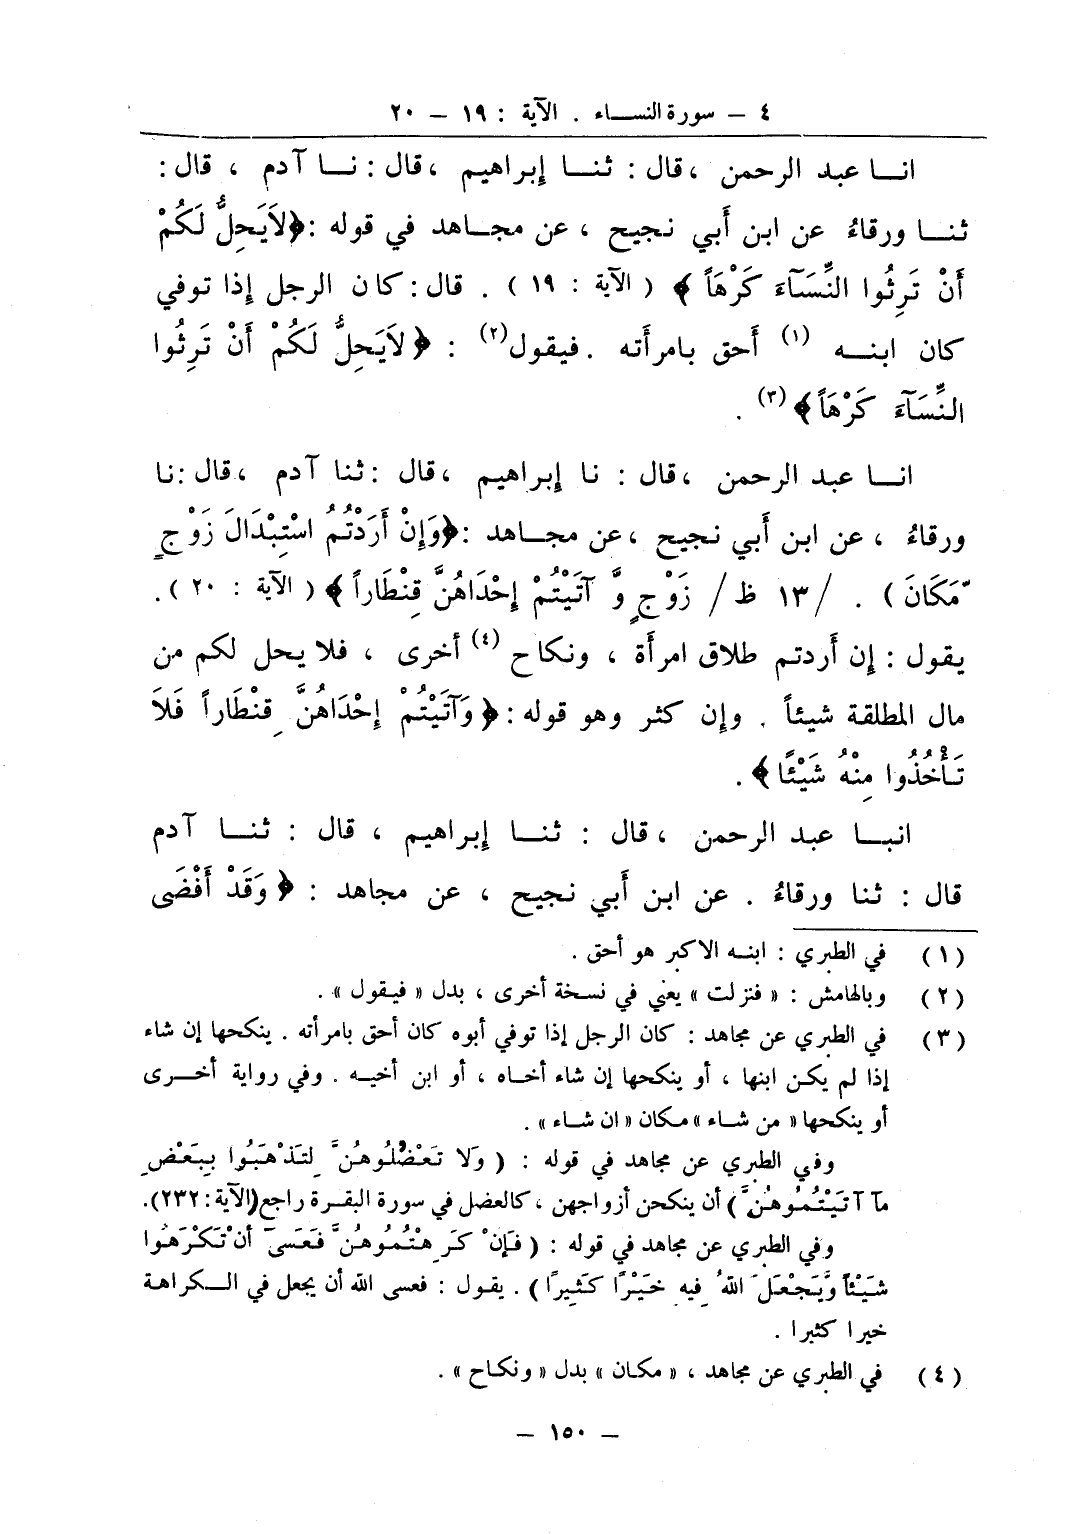 ٤ – سورة النساء . الآية : ١٩ – ٢٠
انا عبد الرحمن ، قال : ثنا إبراهيم ، قال : نا آدم ، قال :
ثنا ورقاءُ عن ابن أَبي نجيح ، عن مجاهد في قوله : ﴿لاَيَحِلُّ لَكُمْ
أَنْ تَرِثُوا النِّسَآءَ كَرْهَاً ﴾ ( الآية : ١٩ ) . قال : كان الرجل إِذا توفي
كان ابنه (١) أَحق بامرأَته . فيقول(٢) : ﴿ لاَيَحِلُّ لَكُمْ أَنْ تَرِثُوا
النِّسَآءَ كَرْهَاً﴾(٣) .
انا عبد الرحمن ، قال : نا إِبراهيم ، قال : ثنا آدم ، قال : نا
ورقاءُ ، عن ابن أَبي نجيح ، عن مجاهد : ﴿وَإِنْ أَرَدْتُمُ اسْتِبْدَالَ زَوْجٍ
مَّكَانَ ) . /١٣ ظ/ زَوْجٍ وَّ آتَيْتُمْ إِحْدَاهُنَّ قِنْطَاراً ﴾ ( الآية : ٢٠ ) .
يقول : إِن أَردتم طلاق امرأَة ، ونكاح (٤) أخرى ، فلا يحل لكم من
مال المطلقة شيئاً . وإِن كثر وهو قوله : ﴿ وَآتَيْتُمْ إِحْدَاهُنَّ قِنْطَاراً فَلاَ
تَأْخُذُوا مِنْهُ شَيْئًا﴾ .
انبا عبد الرحمن ، قال : ثنا إِبراهيم ، قال : ثنا آدم
قال : ثنا ورقاءُ . عن ابن أَبي نجيح ، عن مجاهد : ﴿ وَقَدْ أَفْضَى
(١) في الطبري : ابنه الاكبر هو أحق .
(٢) وبالهامش : « فنزلت » يعني في نسخة أخرى ، بدل « فيقول » .
(٣) في الطبري عن مجاهد : كان الرجل إذا توفي أبوه كان أحق بامرأته . ينكحها إن شاء
إذا لم يكن ابنها ، أو ينكحها إن شاء أخاه ، أو ابن أخيه . وفي رواية أخرى
أو ينكحها « من شاء » مكان « ان شاء » .
وفي الطبري عن مجاهد في قوله : ( وَلا تَعْضُلُوهُنَّ لِتَذْهَبُوا بِبَعْضِ
مآ آتَيْتُمُوهُنَّ ) أن ينكحن أزواجهن ، كالعضل في سورة البقرة راجع (الآية : ٢٣٢) .
وفي الطبري عن مجاهد في قوله : ( فَإِنْ كَرِهْتُمُوهُنَّ فَعَسىَ أنْ تَكْرَهُوا
شَيْئاً وَّيَجْعَلَ اللهُ فِيهِ خَيْرًا كَثِيرًا ) . يقول : فعسى الله أن يجعل في الكراهة
خيرا كثيرا .
(٤) في الطبري عن مجاهد ، « مكان » بدل « ونكاح » .
– ١٥٠ –